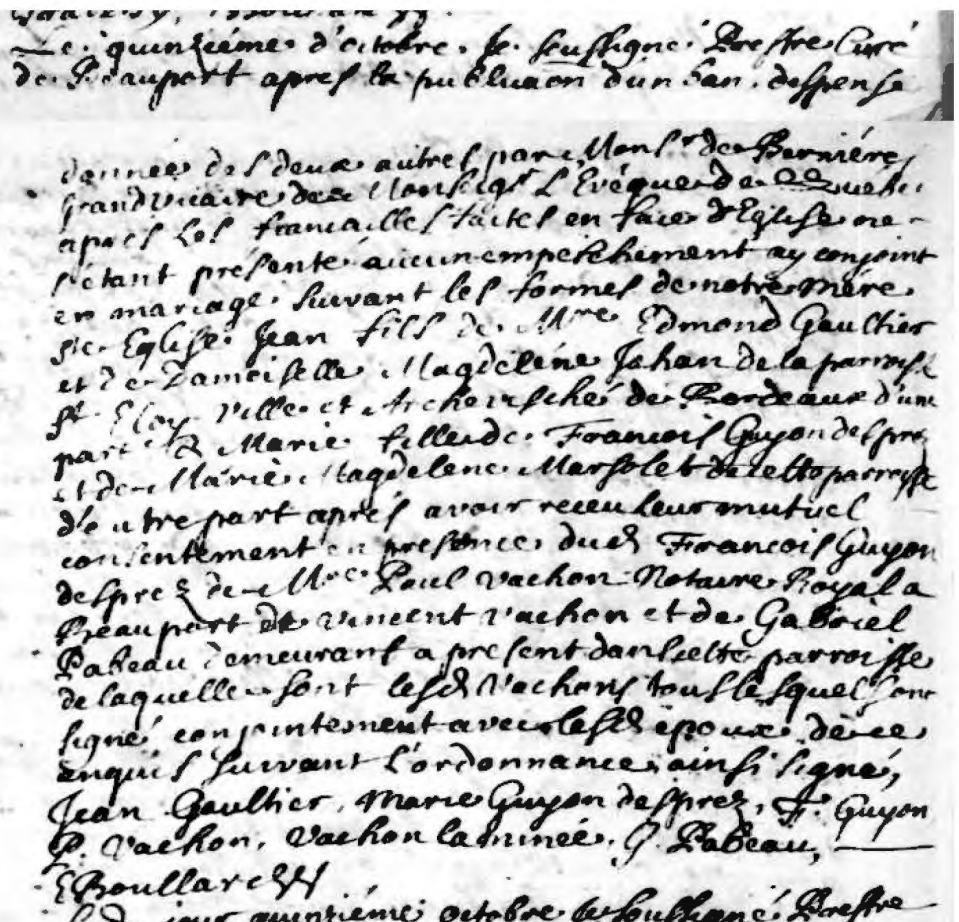 Le quinziéme d'octobre Je soussigné Prestre Curé
de Beauport apres la publicaon d'un ban, dispense
donnée des deux autres par Monsr de Berniéres
grand vicaire de Monseigr L'Evéque de Quebec
aprés les fiancailles faites en face d'Eglise ne
s'étant présenté aucun empeschement ay conjoint
en mariage suivant les formes de notre mere
ste Eglise Jean fils de Mre Edmond Gaultier
et de Damoiselle Magdeléne Jahan de la parroisse
St Eloy ville et Archevesché de Bordeaux d'une
part & Marie fille de Francois Guyon desprez
et de Marie Magdelene Marsolet de cette parroisse
d'autre part aprés avoir receu leur mutuel
consentement en presence dud Francois Guyon
desprez de Mre Paul Vachon Notaire Royal a
Beauport de vincent vachon et de Gabriel
Pabeau demeurant a present dans cette parroisse
de laquelle sont lesd Vachons tous lesquels ont
signé conjointement avec lesd époux de ce
enquis suivant l'ordonnance, ainsi signé,
Jean Gaultier, Marie Guyon desprez, F. Guyon
P. Vachon, Vachon laminée, G. Pabeau,
E Boullard
jour quinziéme octobre Je soussigné Prestre